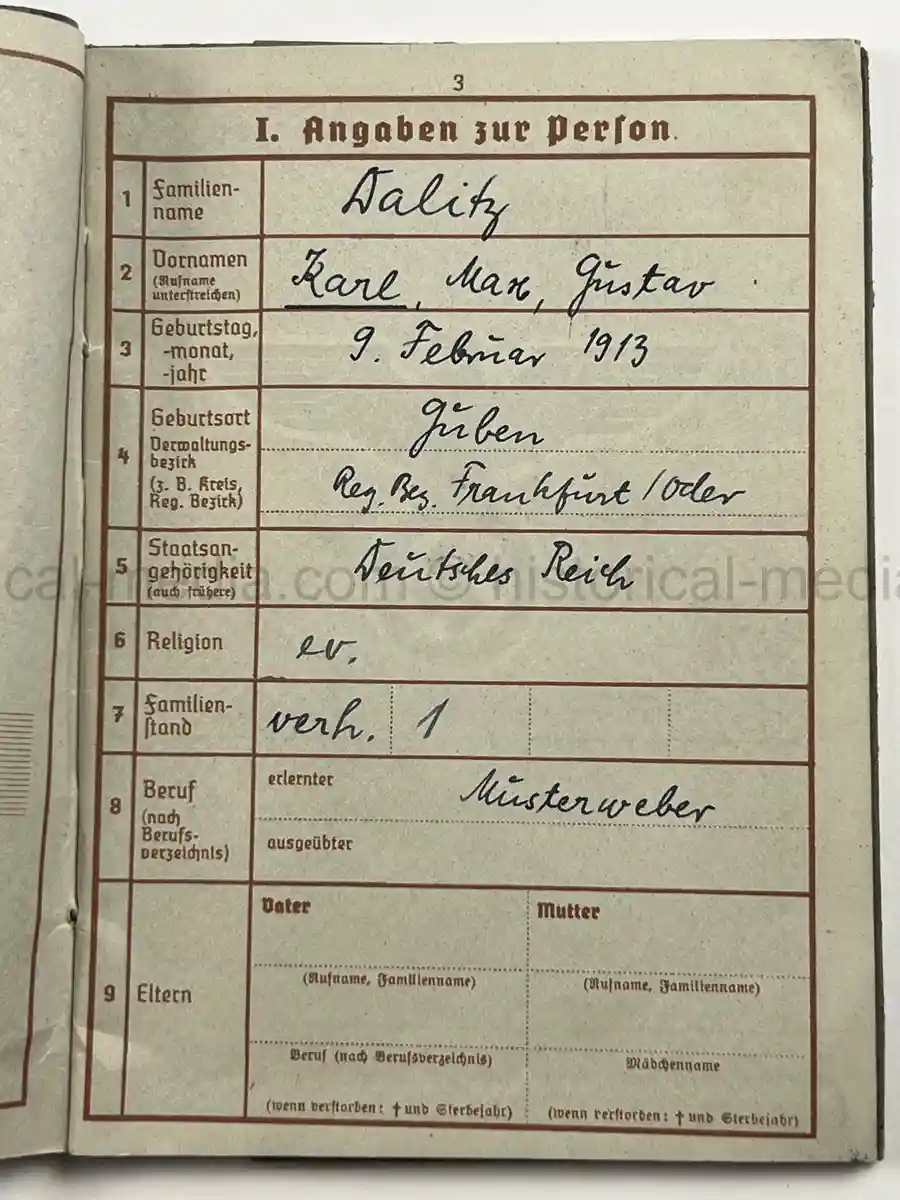 3
I. Angaben zur Person.
1 Familien-
name
Dalitz
2 Vornamen
(Rufname
unterstreichen)
Karl, Max, Gustav
3 Geburtstag,
-monat,
-jahr
9. Februar 1913
4 Geburtsort
Verwaltungs-
bezirk
(z. B. Kreis,
Reg. Bezirk)
Guben
Reg. Bez. Frankfurt / Oder
5 Staatsan-
gehörigkeit
(auch frühere)
Deutsches Reich
cal-media.com © historical-media
6 Religion
ev.
7 Familien-
stand
verh. 1
8 Beruf
(nach
Berufs-
verzeichnis)
erlernter
Musterweber
ausgeübter
9 Eltern
Vater
(Rufname, Familienname)
Beruf (nach Berufsverzeichnis)
(wenn verstorben: † und Sterbejahr)
Mutter
(Rufname, Familienname)
Mädchenname
(wenn verstorben: † und Sterbejahr)